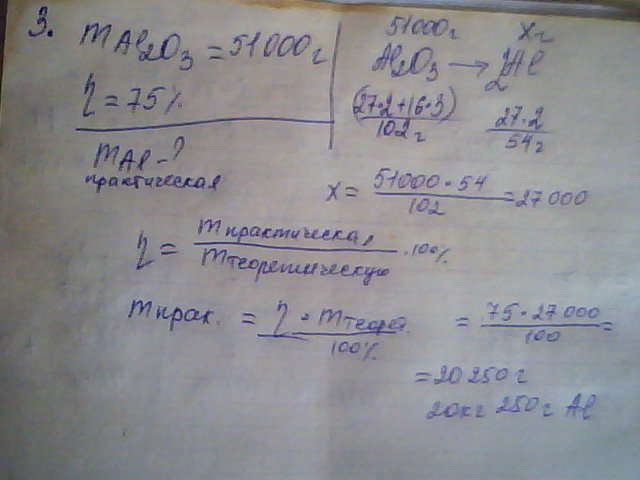 3.
m Al2O3 = 51000г
η = 75%
m Al - ?
практическая
51000г xг
Al2O3 → 2Al
(27·2+16·3) 27·2
102г 54г
x = 51000·54 / 102 = 27 000
η = m практическая / m теоретическую · 100%
m прак. = η · m теорет. / 100% = 75·27 000 / 100 =
= 20 250 г
20кг 250г Al